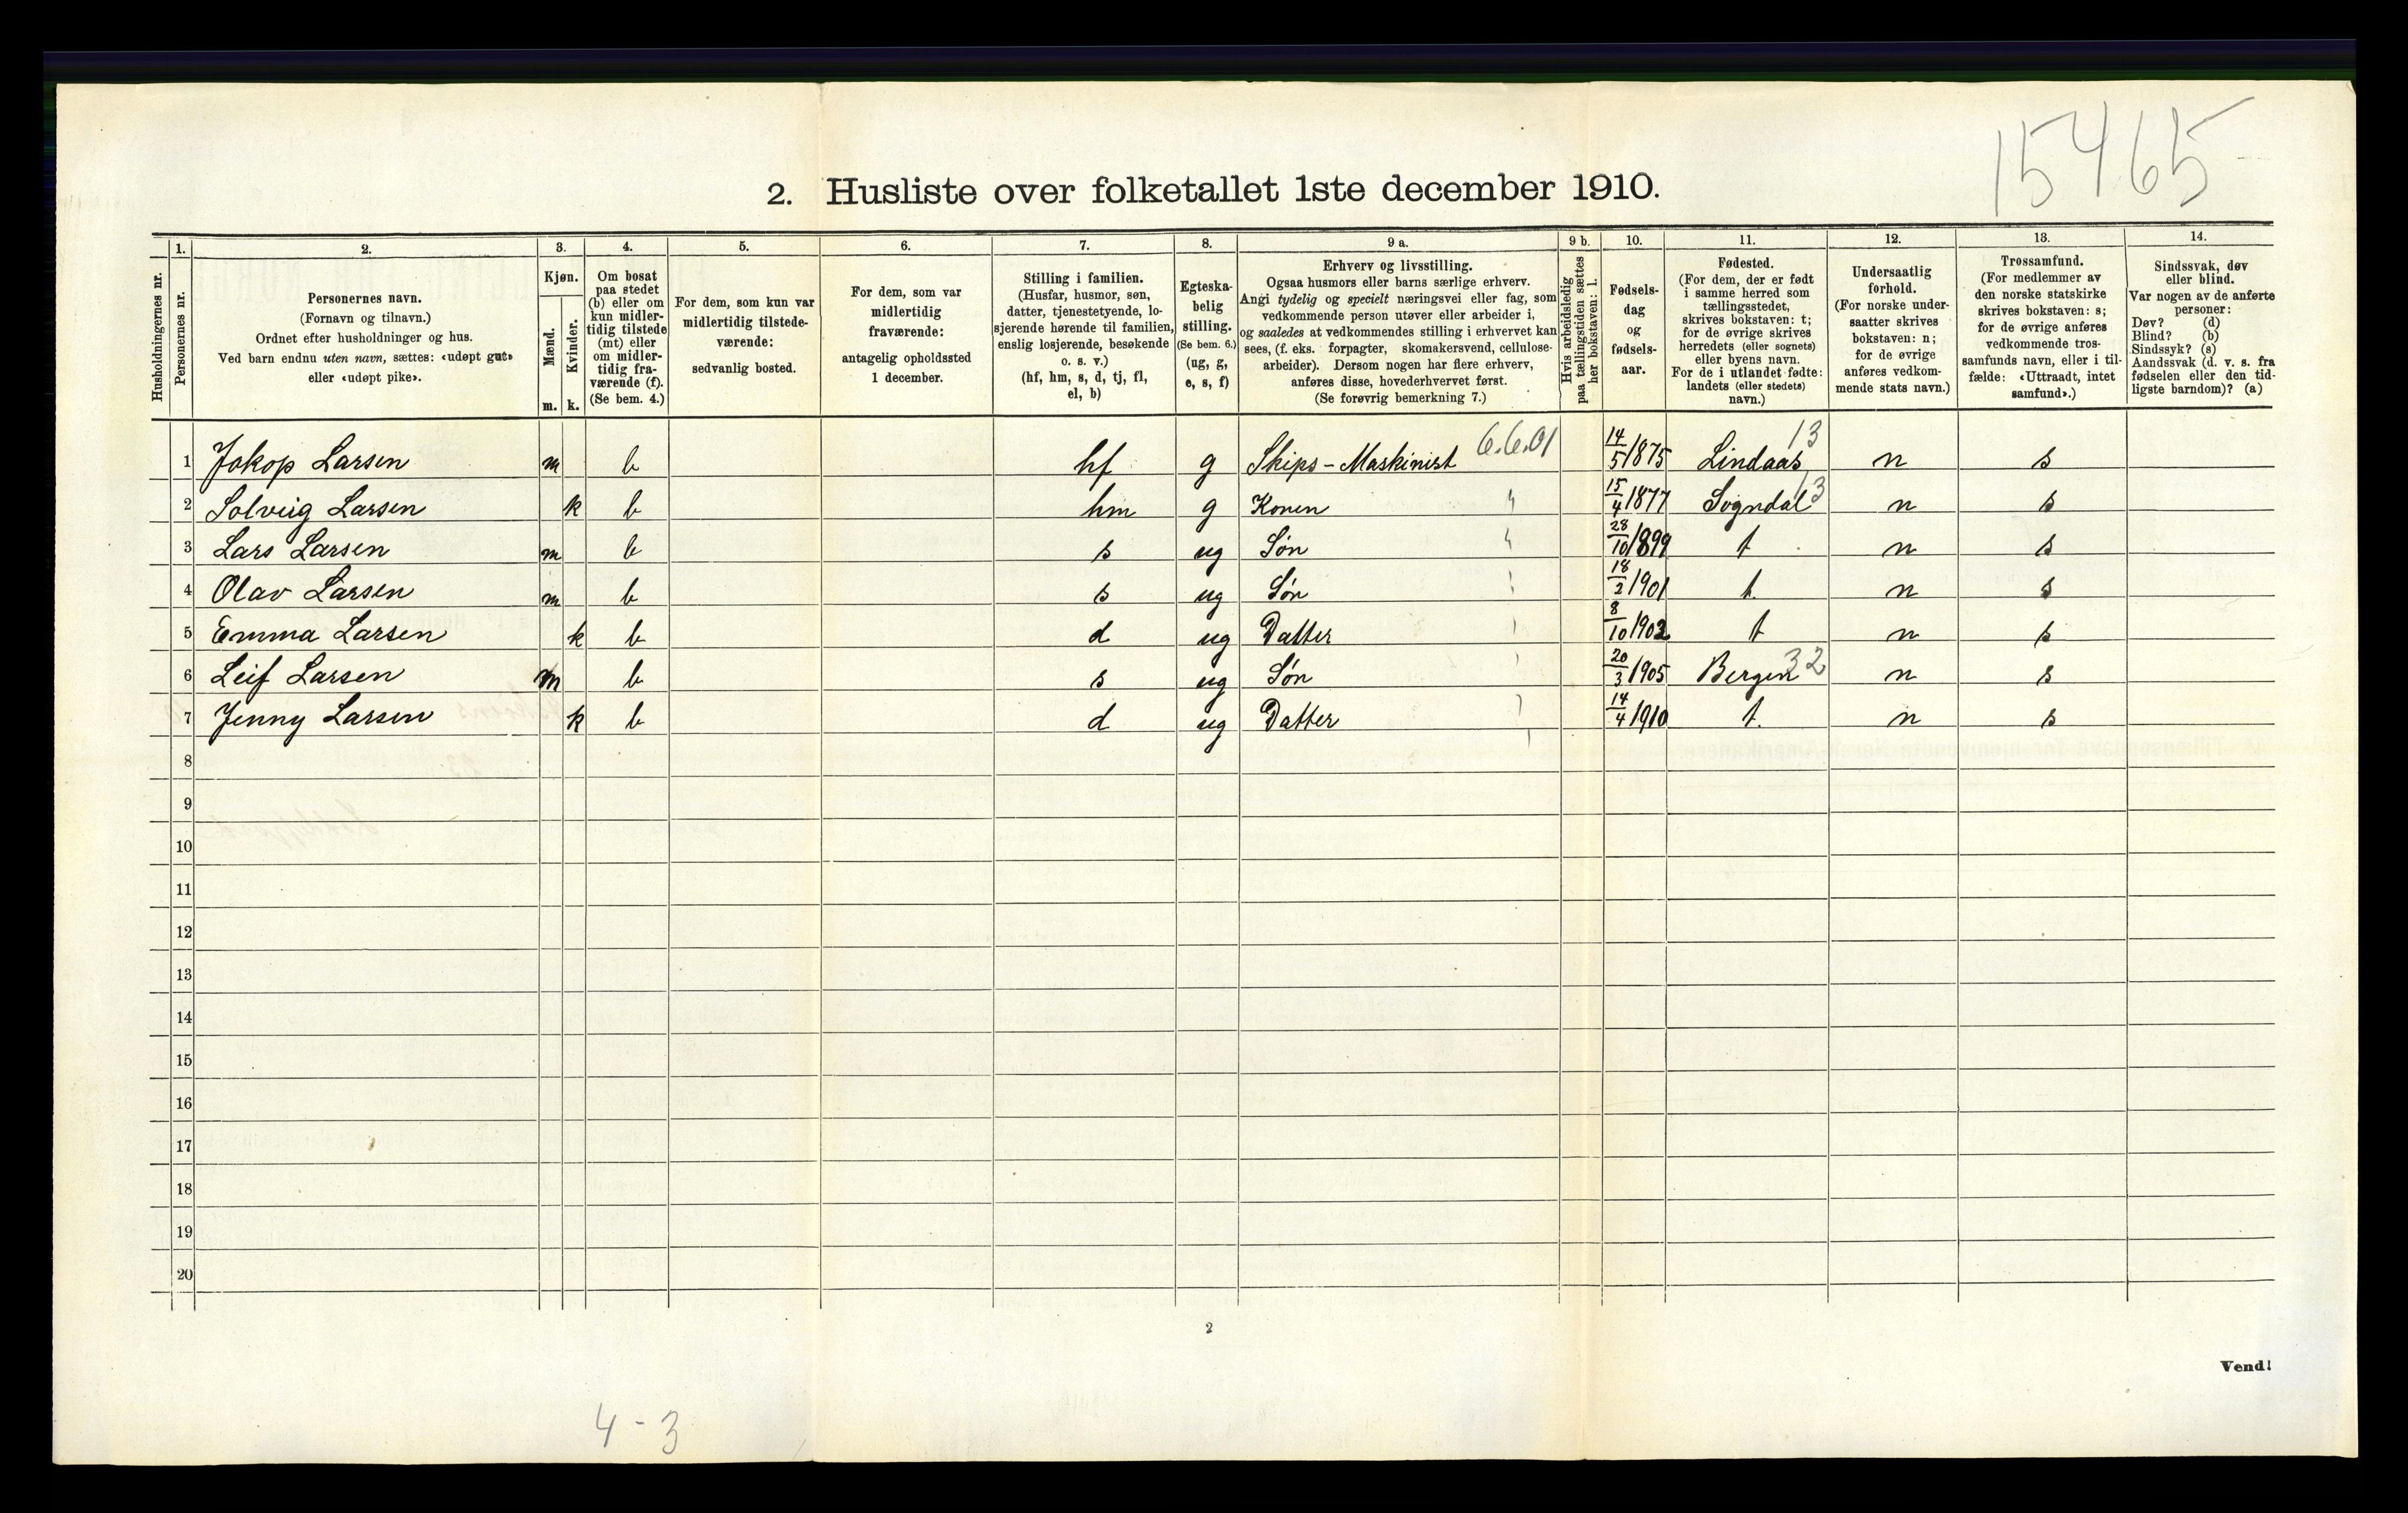 15465
2. Husliste over folketallet 1ste december 1910.
Husholdningernes nr.
1.
Personernes nr.
2.
Personernes navn.
(Fornavn og tilnavn.)
Ordnet efter husholdninger og hus.
Ved barn endnu uten navn, sættes: «udøpt gut»
eller «udøpt pike».
3.
Kjøn.
Mænd.
Kvinder.
m. k.
4.
Om bosat
paa stedet
(b) eller om
kun midler-
tidig tilstede
(mt) eller
om midler-
tidig fra-
værende (f).
(Se bem. 4.)
5.
For dem, som kun var
midlertidig tilstede-
værende:
sedvanlig bosted.
6.
For dem, som var
midlertidig
fraværende:
antagelig opholdssted
1 december.
7.
Stilling i familien.
(Husfar, husmor, søn,
datter, tjenestetyende, lo-
sjerende hørende til familien,
enslig losjerende, besøkende
o. s. v.)
(hf, hm, s, d, tj, fl,
el, b)
8.
Egteska-
belig
stilling.
(Se bem. 6.)
(ug, g,
e, s, f)
9 a.
Erhverv og livsstilling.
Ogsaa husmors eller barns særlige erhverv.
Angi tydelig og specielt næringsvei eller fag, som
vedkommende person utøver eller arbeider i,
og saaledes at vedkommendes stilling i erhvervet kan
sees, (f. eks. forpagter, skomakersvend, cellulose-
arbeider). Dersom nogen har flere erhverv,
anføres disse, hovederhvervet først.
(Se forøvrig bemerkning 7.)
9 b.
Hvis arbeidsledig
paa tællingstiden sættes
her bokstaven: l.
10.
Fødsels-
dag
og
fødsels-
aar.
11.
Fødested.
(For dem, der er født
i samme herred som
tællingsstedet,
skrives bokstaven: t;
for de øvrige skrives
herredets (eller sognets)
eller byens navn.
For de i utlandet fødte:
landets (eller stedets)
navn.)
12.
Undersaatlig
forhold.
(For norske under-
saatter skrives
bokstaven: n;
for de øvrige
anføres vedkom-
mende stats navn.)
13.
Trossamfund.
(For medlemmer av
den norske statskirke
skrives bokstaven: s;
for de øvrige anføres
vedkommende tros-
samfunds navn, eller i til-
fælde: «Uttraadt, intet
samfund».)
14.
Sindssvak, døv
eller blind.
Var nogen av de anførte
personer:
Døv? (d)
Blind? (b)
Sindssyk? (s)
Aandssvak (d. v. s. fra
fødselen eller den tid-
ligste barndom)? (a)
1 Jakop Larsen m b hf g Skips-Maskinist 6.6.01 14/5 1875 Lindaas 13 n s
2 Solveig Larsen k b hm g Konen " 15/4 1877 Sogndal 13 n s
3 Lars Larsen m b s ug Søn " 28/10 1899 t n s
4 Olav Larsen m b s ug Søn 18/2 1901 t. n s
5 Emma Larsen k b d ug Datter 8/10 1902 t n s
6 Leif Larsen m b s ug Søn 20/3 1905 Bergen 32 n s
7 Jenny Larsen k b d ug Datter 14/4 1910 t. n s
8
9
10
11
12
13
14
15
16
17
18
19
20
2
Vend!
4-3